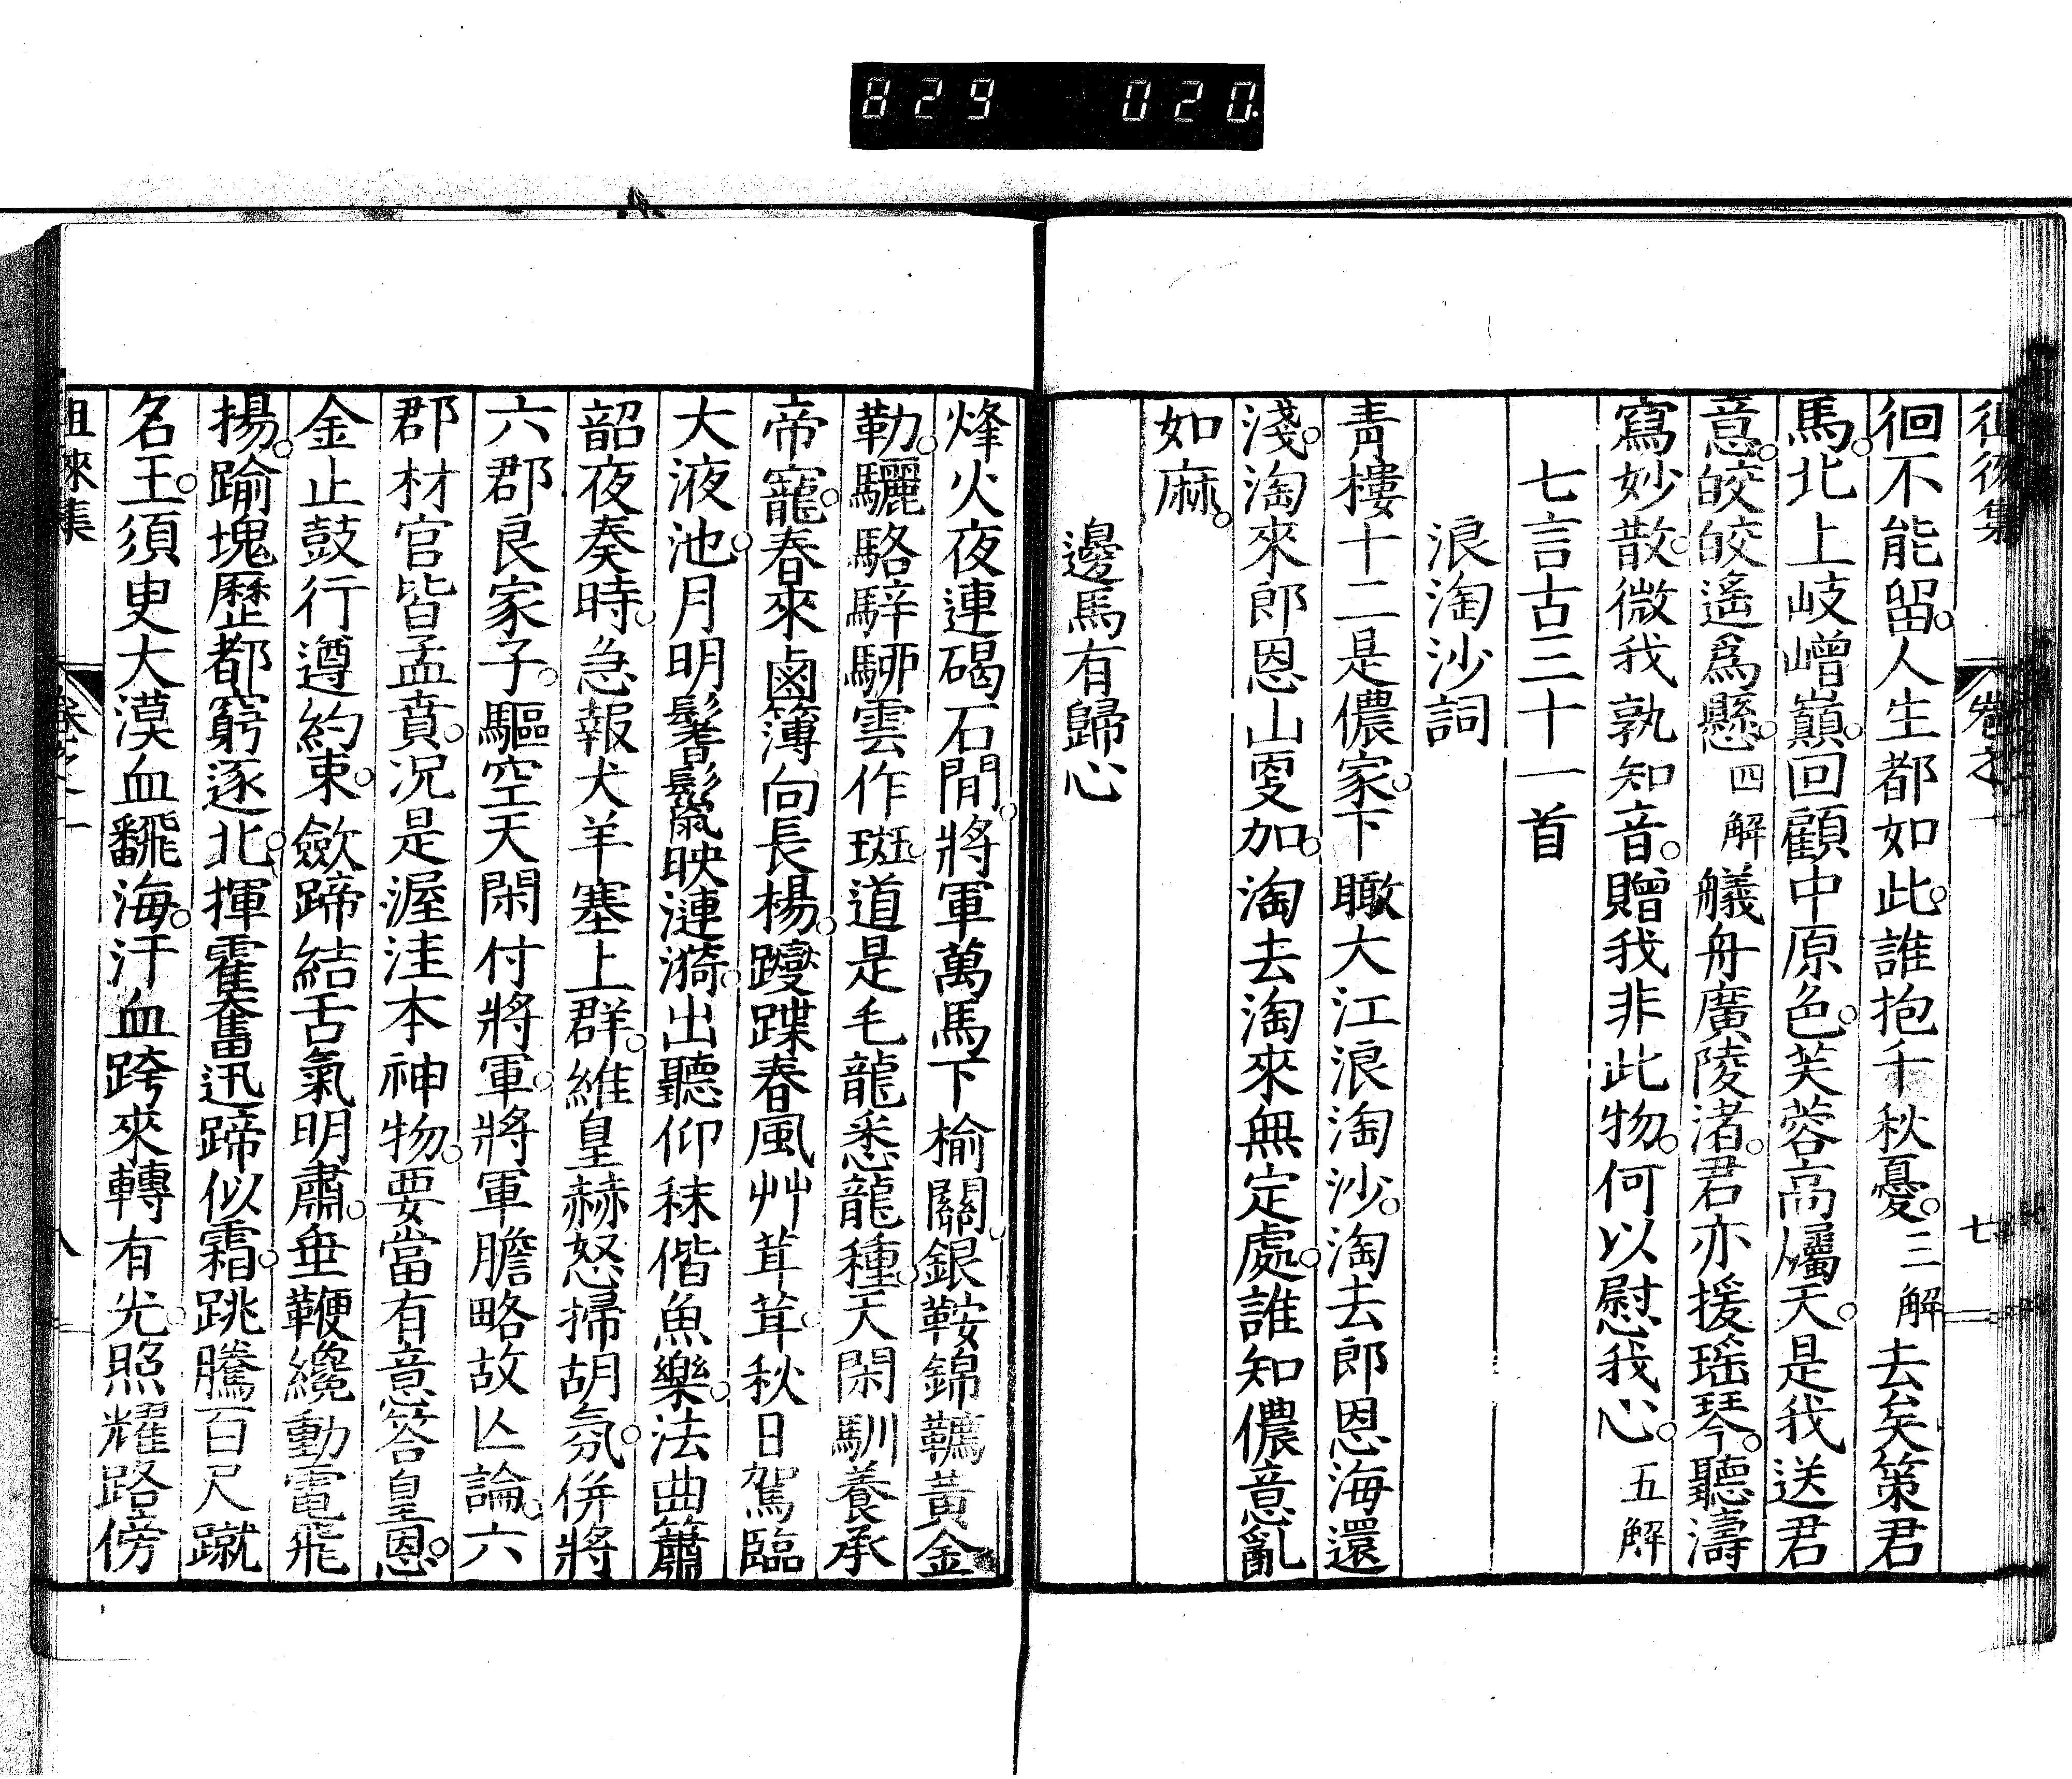 829 020
徂徠集 卷之一 七
徊不能留。人生都如此。誰抱千秋憂。三解去矣策君
馬。北上岐嶒巔。回顧中原色。芙蓉高屬天。是我送君
意。皎皎遙爲懸。四解艤舟廣陵渚。君亦援瑶琴。聽濤
寫妙散。微我孰知音。贈我非此物。何以慰我心。五解
七言古三十一首
浪淘沙詞
青樓十二是儂家。下瞰大江浪淘沙。淘去郎恩海還
淺。淘來郎恩山更加。淘去淘來無定處。誰知儂意亂
如麻。
邊馬有歸心
烽火夜連碣石間。將軍萬馬下榆關。銀鞍錦韉黃金
勒。驪駱騂駵雲作斑。道是毛龍悉龍種。天閑馴養承
帝寵。春來鹵簿向長楊。躞蹀春風艸茸茸。秋日駕臨
大液池。月明鬐鬣映漣漪。出聽仰秣偕魚樂。法曲簫
韶夜奏時。急報犬羊塞上群。維皇赫怒掃胡氛。併將
六郡良家子。驅空天閑付將軍。將軍膽略故亡論。六
郡材官皆孟賁。況是渥洼本神物。要當有意答皇恩。
金止鼓行遵約束。歛蹄結舌氣明肅。垂鞭纔動電飛
揚。踰塊歷都窮逐北。揮霍奮迅蹄似霜。跳騰百尺蹴
名王。須臾大漠血飜海。汗血跨來轉有光。照耀路傍
徂徠集 卷之一 八